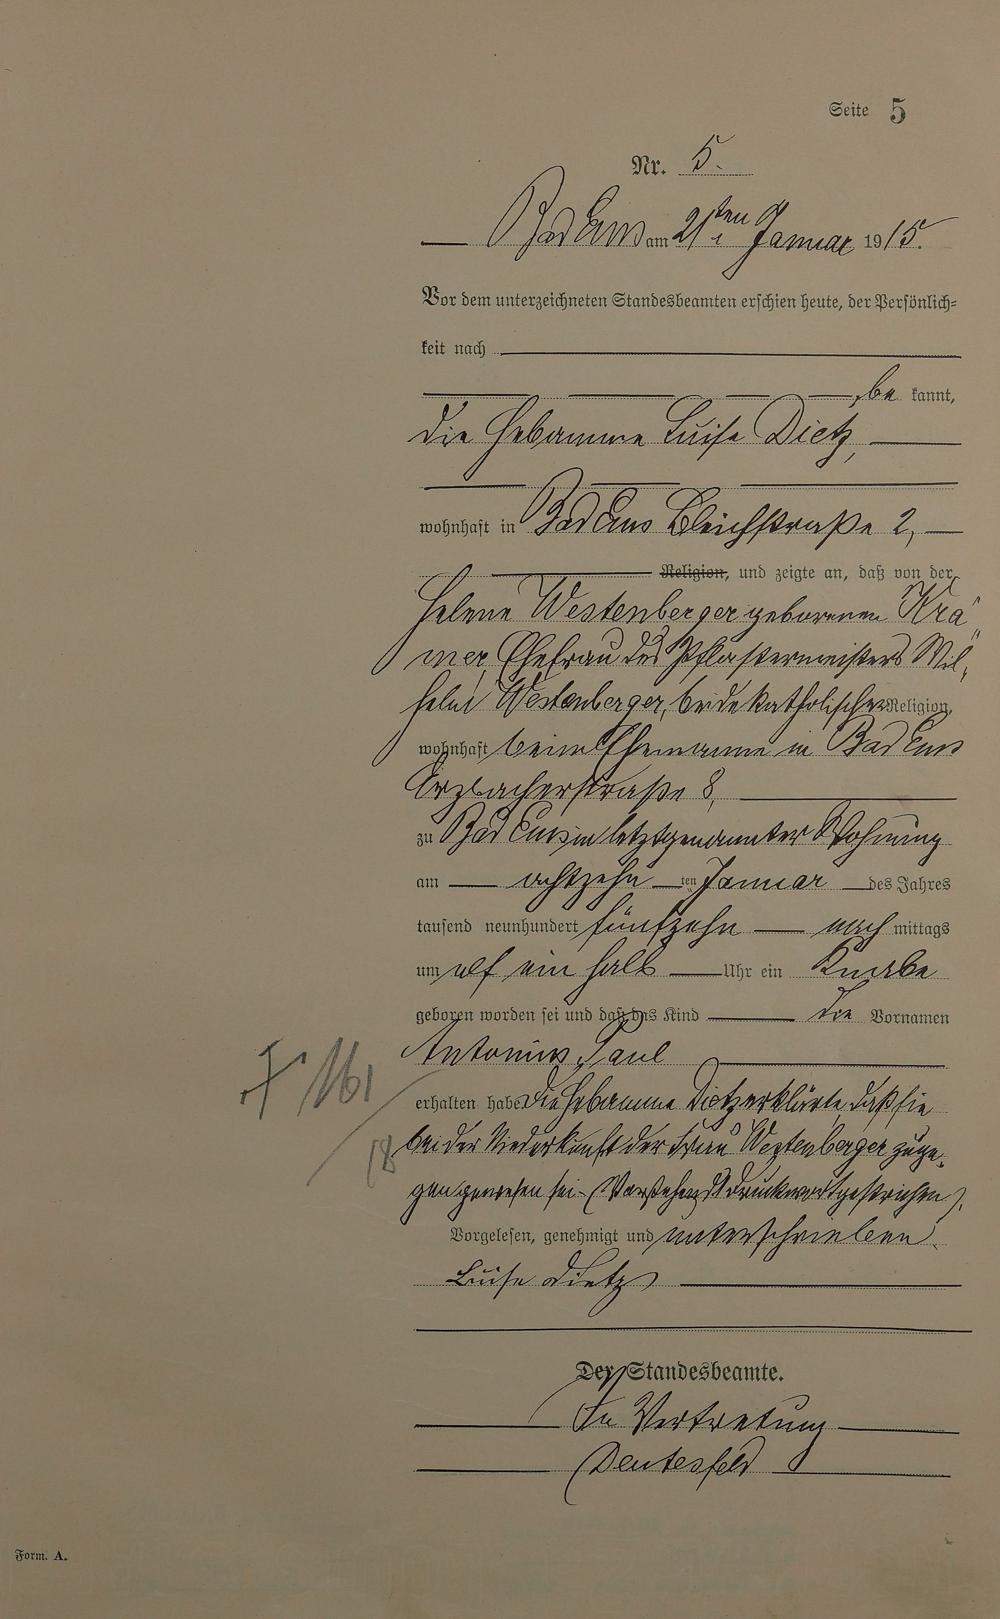 Seite 5
Nr. 5.
Bad Ems am 21ten Januar 1915.
Vor dem unterzeichneten Standesbeamten erschien heute, der Persönlich=
keit nach
be kannt,
die Hebamme Luise Dietz,
wohnhaft in Bad Ems Bleichstraße 2,
Religion, und zeigte an, daß von der
Helene Westenberger geborenen Krä=
mer, Ehefrau des Pflastermeisters Wil=
helm Westenberger, beide katholischer Religion,
wohnhaft beim Ehemanne in Bad Ems
Arzbacherstraße 8,
zu Bad Ems in letztgenannter Wohnung
am achtzehn ten Januar des Jahres
tausend neunhundert fünfzehn nach mittags
um elf ein halb Uhr ein Knabe
geboren worden sei und daß das Kind die Vornamen
Antonius Paul
erhalten habe. Die Hebamme Dietz erklärte, daß sie
bei der Niederkunft der Frau Westenberger zuge=
gen gewesen sei. (Vorstehend 1 Druckwort gestrichen).
Vorgelesen, genehmigt und unterschrieben
Luise Dietz
Der Standesbeamte.
In Vertretung
† 161
18
Form. A.